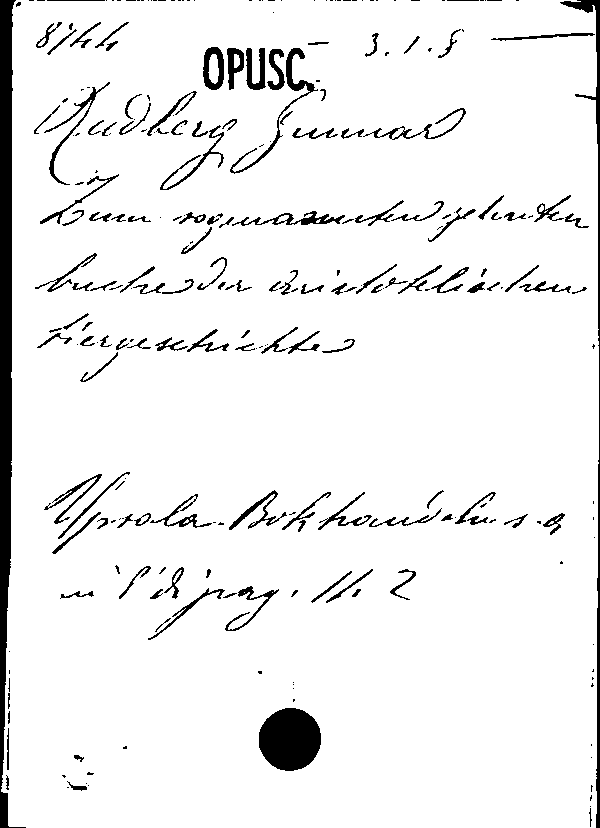 8744 OPUSC. 3.1.8
Rudberg Gunnar
Zum sogenannten zehnten
buche der aristotelischen
tiergeschichte
Upsala Bokhandeln s. a
in 8° di pag. 11. 2